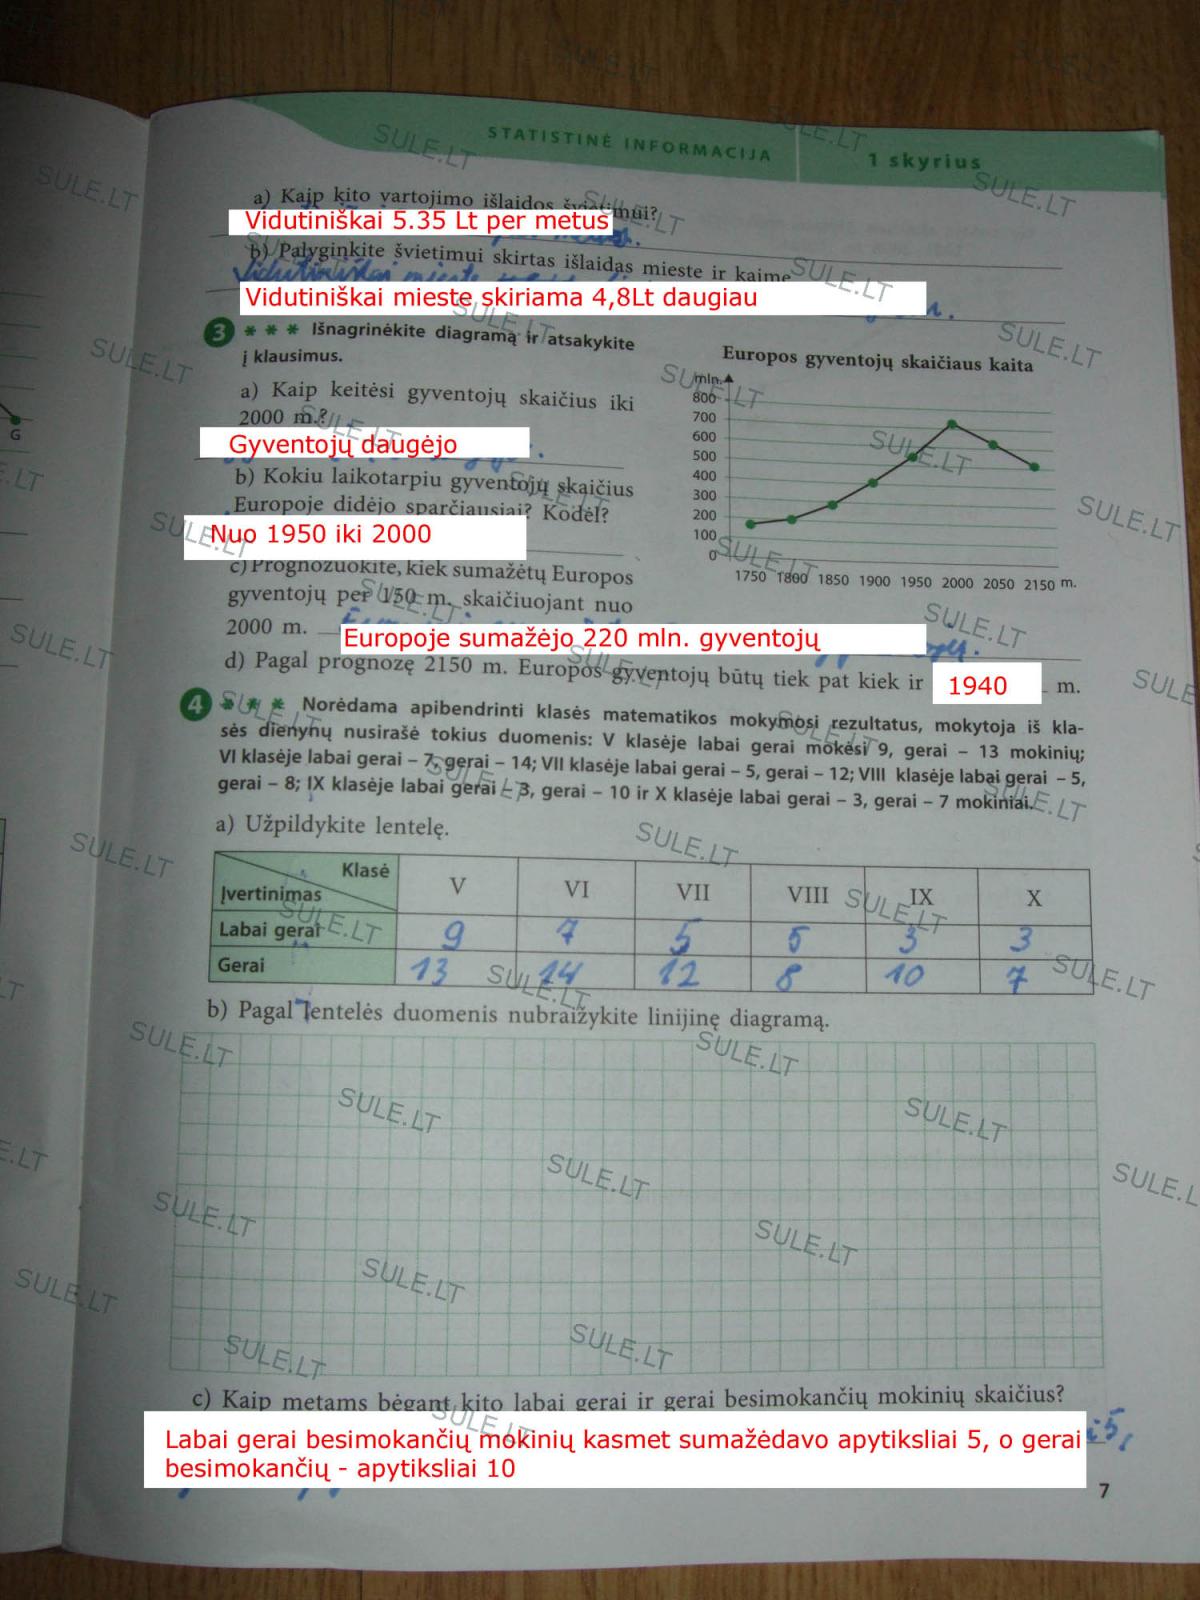 STATISTINĖ INFORMACIJA
1 skyrius
a) Kaip kito vartojimo išlaidos švietimui?
Vidutiniškai 5.35 Lt per metus
b) Palyginkite švietimui skirtas išlaidas mieste ir kaime
Vidutiniškai mieste skiriama 4,8Lt daugiau
3 * * * Išnagrinėkite diagramą ir atsakykite
į klausimus.
a) Kaip keitėsi gyventojų skaičius iki
2000 m.?
Gyventojų daugėjo
b) Kokiu laikotarpiu gyventojų skaičius
Europoje didėjo sparčiausiai? Kodėl?
Nuo 1950 iki 2000
c) Prognozuokite, kiek sumažėtų Europos
gyventojų per 150 m. skaičiuojant nuo
2000 m.
Europoje sumažėjo 220 mln. gyventojų
d) Pagal prognozę 2150 m. Europos gyventojų būtų tiek pat kiek ir 1940 m.
Europos gyventojų skaičiaus kaita
mln.
800
700
600
500
400
300
200
100
0
1750 1800 1850 1900 1950 2000 2050 2150 m.
G
4 * * * Norėdama apibendrinti klasės matematikos mokymosi rezultatus, mokytoja iš kla-
sės dienynų nusirašė tokius duomenis: V klasėje labai gerai mokėsi 9, gerai – 13 mokinių;
VI klasėje labai gerai – 7, gerai – 14; VII klasėje labai gerai – 5, gerai – 12; VIII klasėje labai gerai – 5,
gerai – 8; IX klasėje labai gerai – 3, gerai – 10 ir X klasėje labai gerai – 3, gerai – 7 mokiniai.
a) Užpildykite lentelę.
Klasė
Įvertinimas V VI VII VIII IX X
Labai gerai 9 7 5 5 3 3
Gerai 13 14 12 8 10 7
b) Pagal lentelės duomenis nubraižykite linijinę diagramą.
c) Kaip metams bėgant kito labai gerai ir gerai besimokančių mokinių skaičius?
Labai gerai besimokančių mokinių kasmet sumažėdavo apytiksliai 5, o gerai
besimokančių - apytiksliai 10
7
SULE.LT